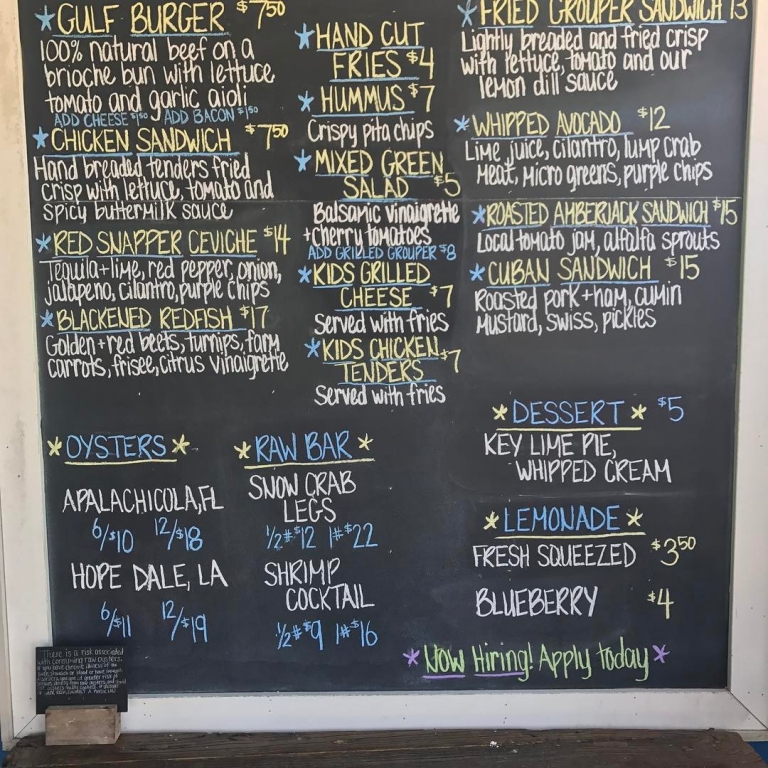 GULF BURGER $7.50
100% natural beef on a
brioche bun with lettuce
tomato and garlic aioli
ADD CHEESE $1.50 ADD BACON $1.50
CHICKEN SANDWICH $7.50
Hand breaded tenders fried
crisp with lettuce, tomato and
spicy buttermilk sauce
RED SNAPPER CEVICHE $14
Tequila+lime, red pepper, onion,
jalapeno, cilantro, purple chips
BLACKENED REDFISH $17
Golden+red beets, turnips, farm
carrots, frisee, citrus vinaigrette
HAND CUT
FRIES $4
HUMMUS $7
Crispy pita chips
MIXED GREEN
SALAD $5
Balsamic vinaigrette
+cherry tomatoes
ADD GRILLED GROUPER $8
KIDS GRILLED
CHEESE $7
Served with fries
KIDS CHICKEN
TENDERS $7
Served with fries
FRIED GROUPER SANDWICH 13
Lightly breaded and fried crisp
with lettuce, tomato and our
lemon dill sauce
WHIPPED AVOCADO $12
Lime juice, cilantro, lump crab
Meat, micro greens, purple chips
ROASTED AMBERJACK SANDWICH $15
Local tomato jam, alfalfa sprouts
CUBAN SANDWICH $15
Roasted pork+ham, cumin
Mustard, swiss, pickles
OYSTERS
APALACHICOLA, FL
6/$10 12/$18
HOPE DALE, LA
6/$11 12/$19
RAW BAR
SNOW CRAB
LEGS
1/2# $12 1# $22
SHRIMP
COCKTAIL
1/2# $9 1# $16
DESSERT $5
KEY LIME PIE,
WHIPPED CREAM
LEMONADE
FRESH SQUEEZED $3.50
BLUEBERRY $4
Now Hiring! Apply today
There is a risk associated
with consuming raw oysters.